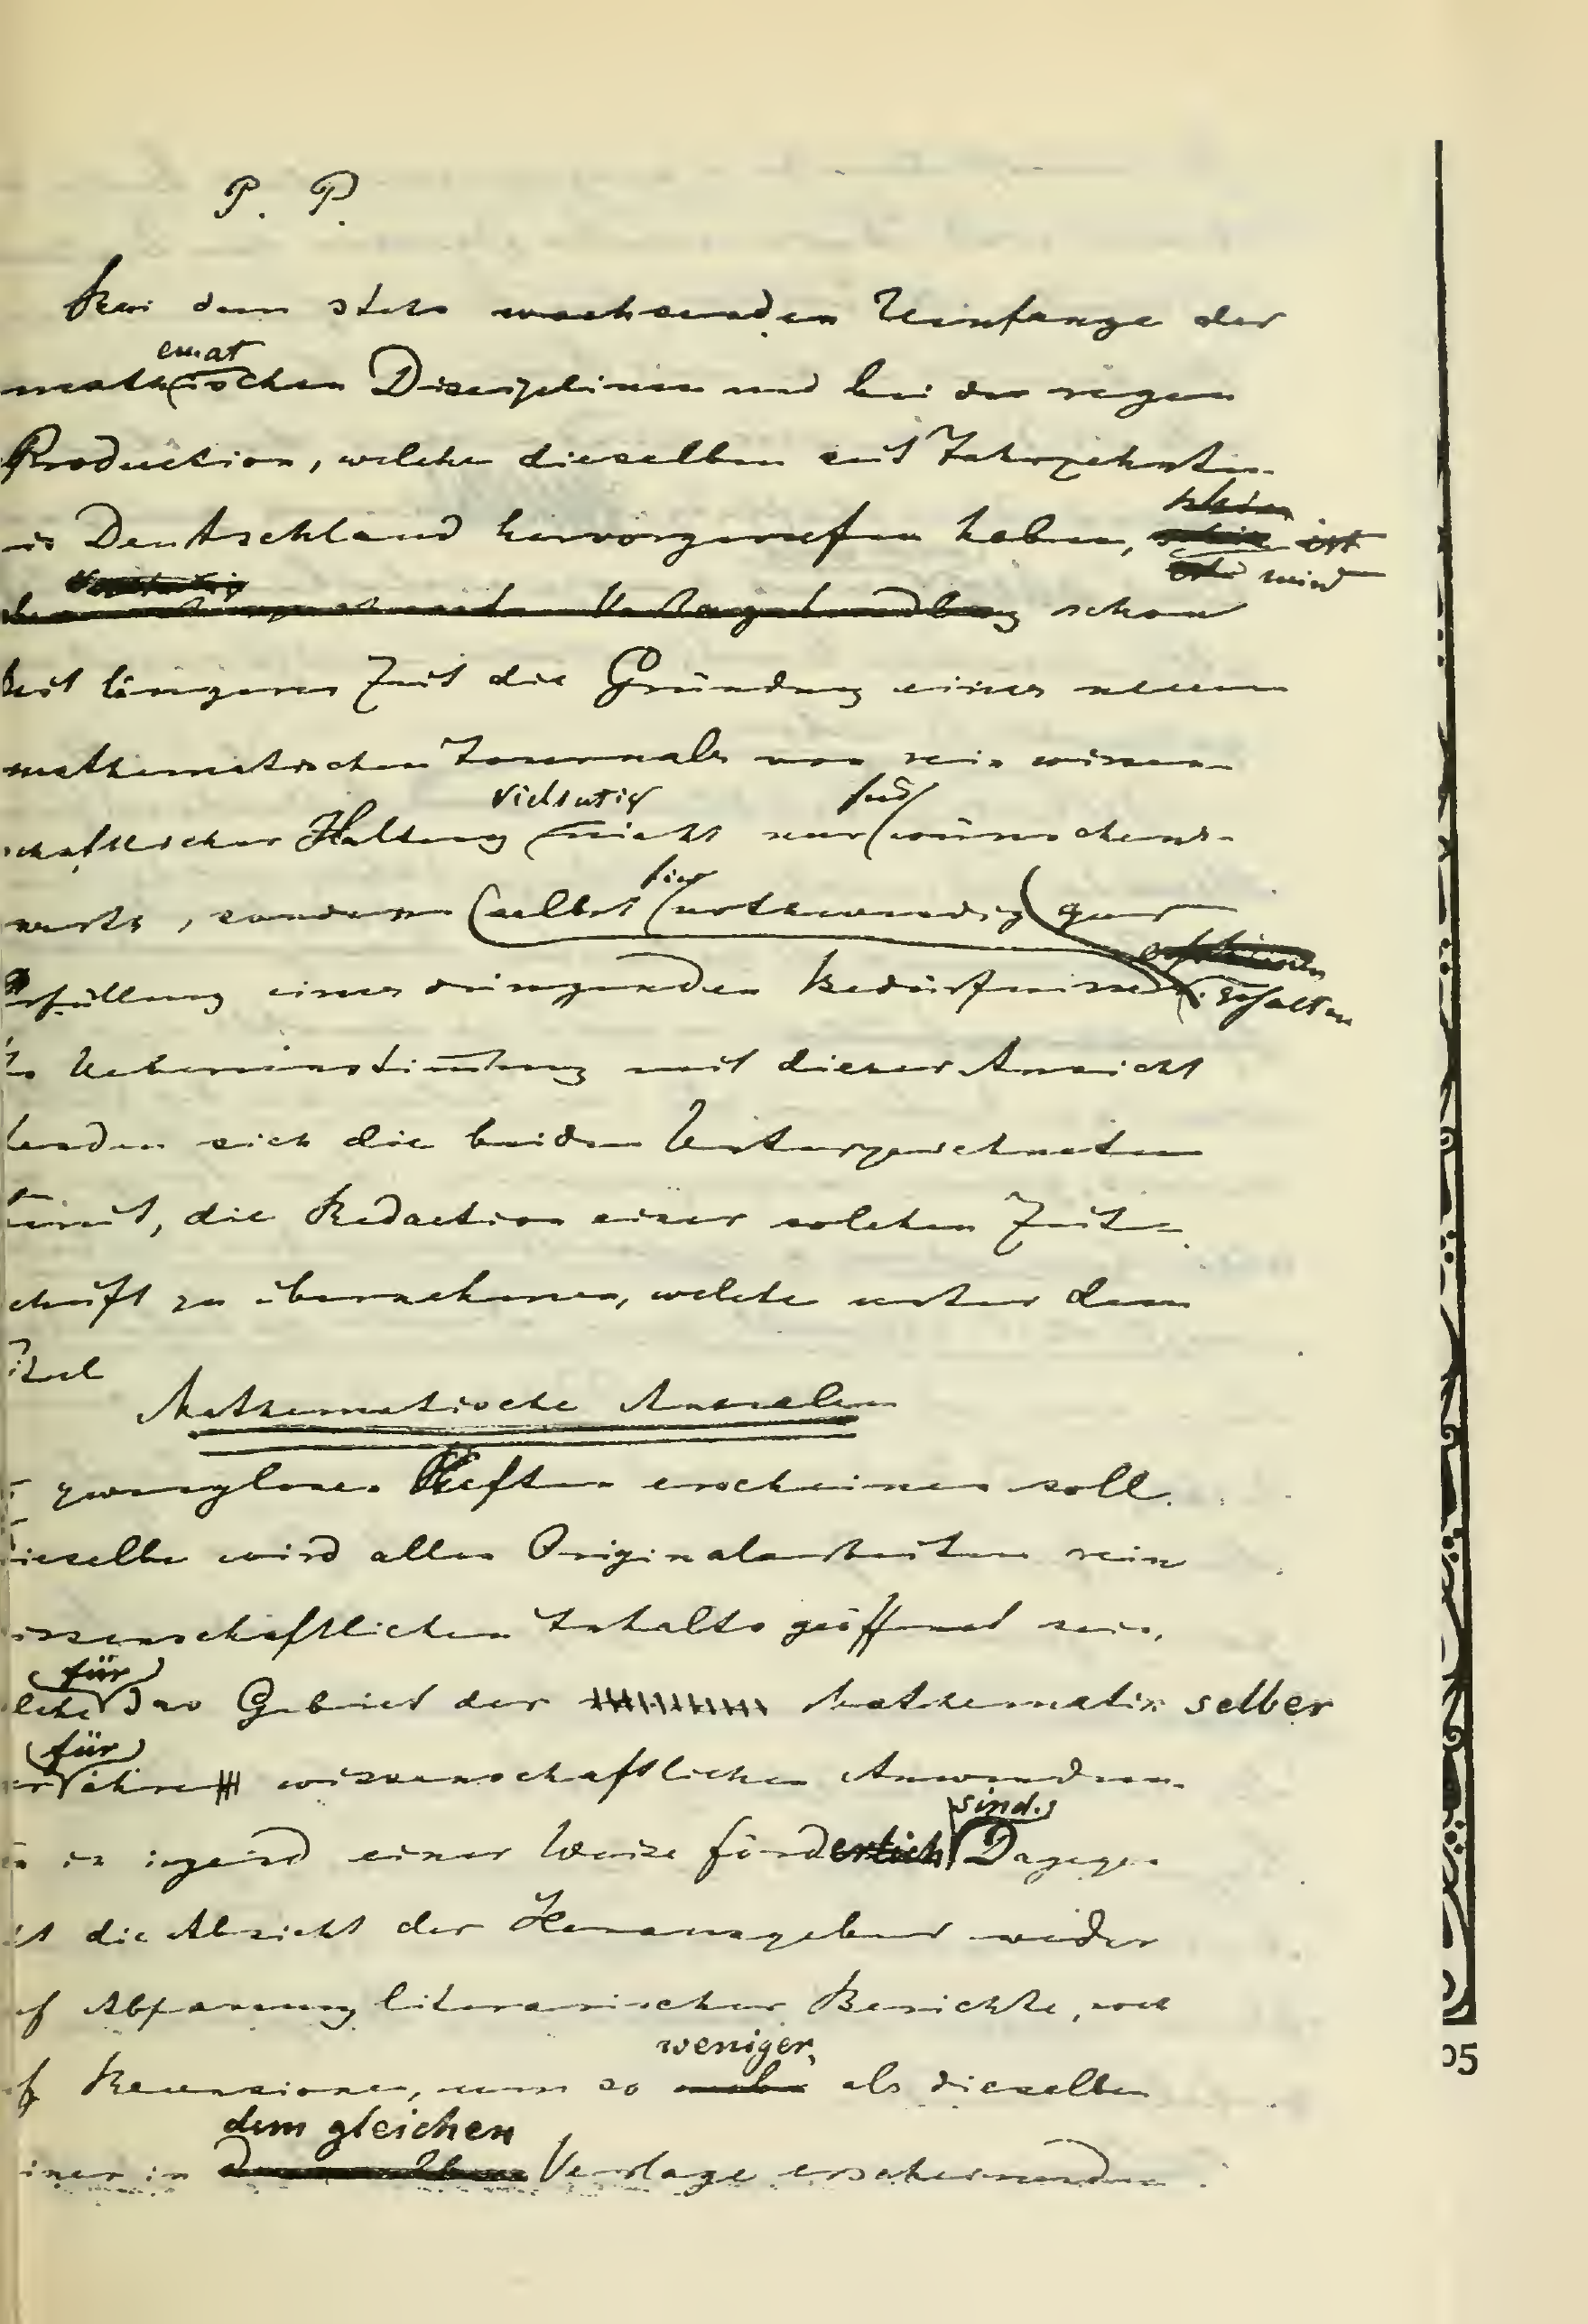 P. P.
Bei dem stets wachsenden Umfange der
emat
mathischen Disciplinen und bei der regen
Production, welche dieselben seit Jahrzehnten
in Deutschland hervorgerufen haben, ist
wird
Verlagshandlung schon
seit längerer Zeit die Gründung eines neuen
mathematischen Journals von rein wissen-
vielseitig für
schaftlicher Haltung nicht nur wünschens-
für
werth, sondern selbst nothwendig zur
Erfüllung eines dringenden Bedürfnisses gehalten
In Uebereinstimmung mit dieser Ansicht
haben sich die beiden Unterzeichneten
geeint, die Redaction einer solchen Zeit-
schrift zu übernehmen, welche unter dem
Titel
Mathematische Annalen
zwanglosen Heften erscheinen soll.
Dieselbe wird allen Originalarbeiten rein
issenschaftlichen Inhalts geöffnet sein,
für
lche das Gebiet der Mathematik selber
für
er ihre wissenschaftlichen Anwendun-
sind.
en in irgend einer Weise förderlich Dagegen
ist die Absicht der Herausgeber weder
uf Abfassung literarischer Berichte, noch
uf Recensionen, um so mehr als dieselben
weniger,
dem gleichen
iner in demselben Verlage erscheinenden
95